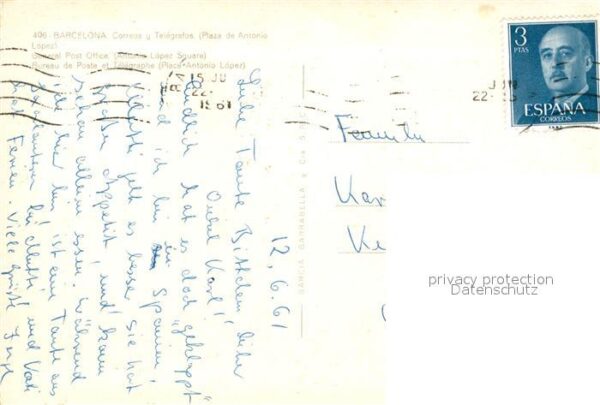 406 - BARCELONA. Correos y Telégrafos. (Plaza de Antonio
López)
General Post Office (Antonio López Square)
Bureau de Poste et Télégraphe (Place Antonio López)
15 JU
22
1961
3
PTAS
ESPAÑA
CORREOS
22
12.6.61
Liebe Tante Bittchen, lieber
Onkel Karl!
Endlich hat es doch "geklappt"
und ich bin in Spanien!
Mutti geht es besser, sie hat
große Appetit! und kann
schon allein essen. Während
ich hier bin, ist eine Tante aus
bei Mutti und Vati
hat Ferien. Viele Grüße Inge
GARCIA GARRABELLA y Cia
Familie
Kar
Ke
privacy protection
Datenschutz